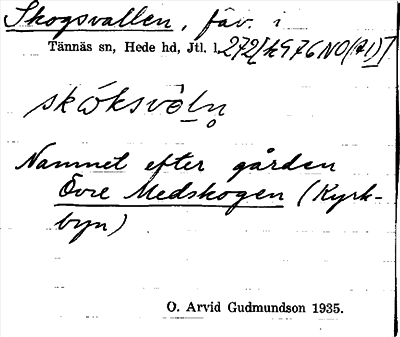 Skogsvallen, fäv. i
Tännäs sn, Hede hd, Jtl. l.
skóksvèln̥
Namnet efter gården
Övre Medskogen (Kyrk-
byn)
O. Arvid Gudmundson 1935.